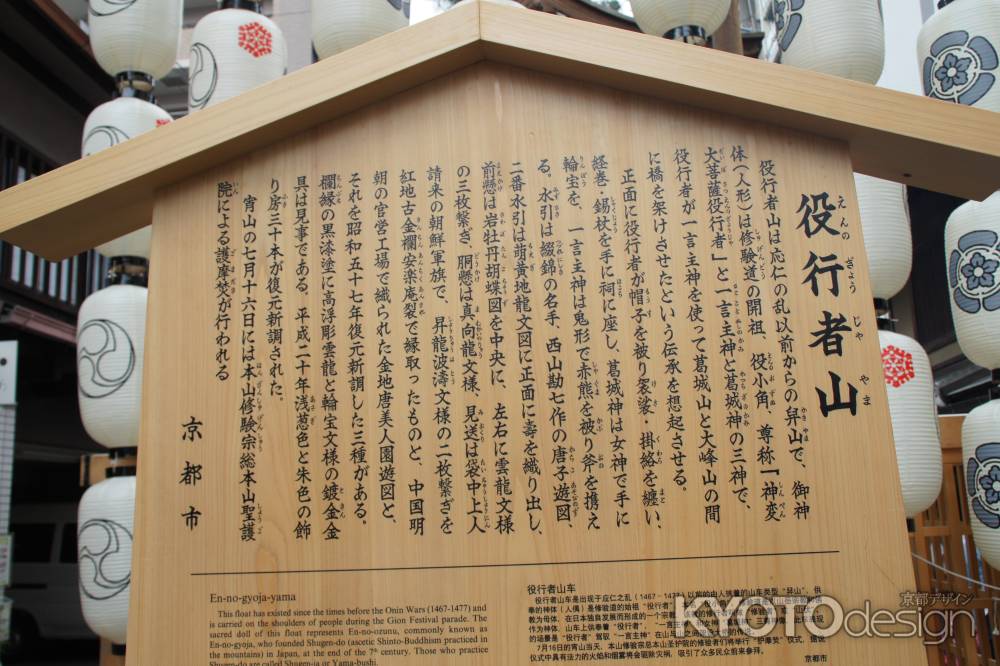 役行者山
役行者山は応仁の乱以前からの舁山で、御神
体（人形）は修験道の開祖、役小角、尊称「神変
大菩薩役行者」と一言主神と葛城神の三神で、
役行者が一言主神を使って葛城山と大峰山の間
に橋を架けさせたという伝承を想起させる。
正面に役行者が帽子を被り袈裟・掛絡を纏い、
経巻・錫杖を手に祠に座し、葛城神は女神で手に
輪宝を、一言主神は鬼形で赤熊を被り斧を携え
る。水引は綴錦の名手、西山勘七作の唐子遊図、
二番水引は萌黄地龍文図に正面に壽を織り出し、
前懸は岩牡丹胡蝶図を中央に、左右に雲龍文様
の三枚撃ぎ、胴懸は真向龍文様、見送は袋中上人
請来の朝鮮軍旗で、昇龍波濤文様の二枚撃ぎを
紅地古金襴安楽庵裂で縁取ったものと、中国明
朝の官営工場で織られた金地唐美人園遊図と、
それを昭和五十七年復元新調した三種がある。
欄縁の黒漆塗に高浮彫雲龍と輪宝文様の鍍金金
具は見事である。平成二十年浅葱色と朱色の飾
り房三十本が復元新調された。
宵山の七月十六日には本山修験宗総本山聖護
院による護摩焚が行われる
京都市
En-no-gyoja-yama
This float has existed since the times before the Onin Wars (1467-1477) and
is carried on the shoulders of people during the Gion Festival parade. The
sacred doll of this float represents En-no-ozunu, commonly known as
En-no-gyoja, who founded Shugen-do (ascetic Shinto-Buddhism practiced in
the mountains) in Japan, at the end of the 7th century. Those who practice
Shugen-do are called Shugen-ja or Yama-bushi.
役行者山车
役行者山车是出现于应仁之乱（1467－1477）以前的由人擡量的山车类型“舁山”。供
奉的神体（人偶）是修验道的始祖“役行者”
7月16日的宵山当天，本山修验宗总本山圣护院的修验者们将举行“护摩焚”仪式。据说
仪式中具有法力的火焰和烟雾将会驱除灾祸，吸引了众多民众前来参拜。
京都市
KYOTOdesign
京都デザイン